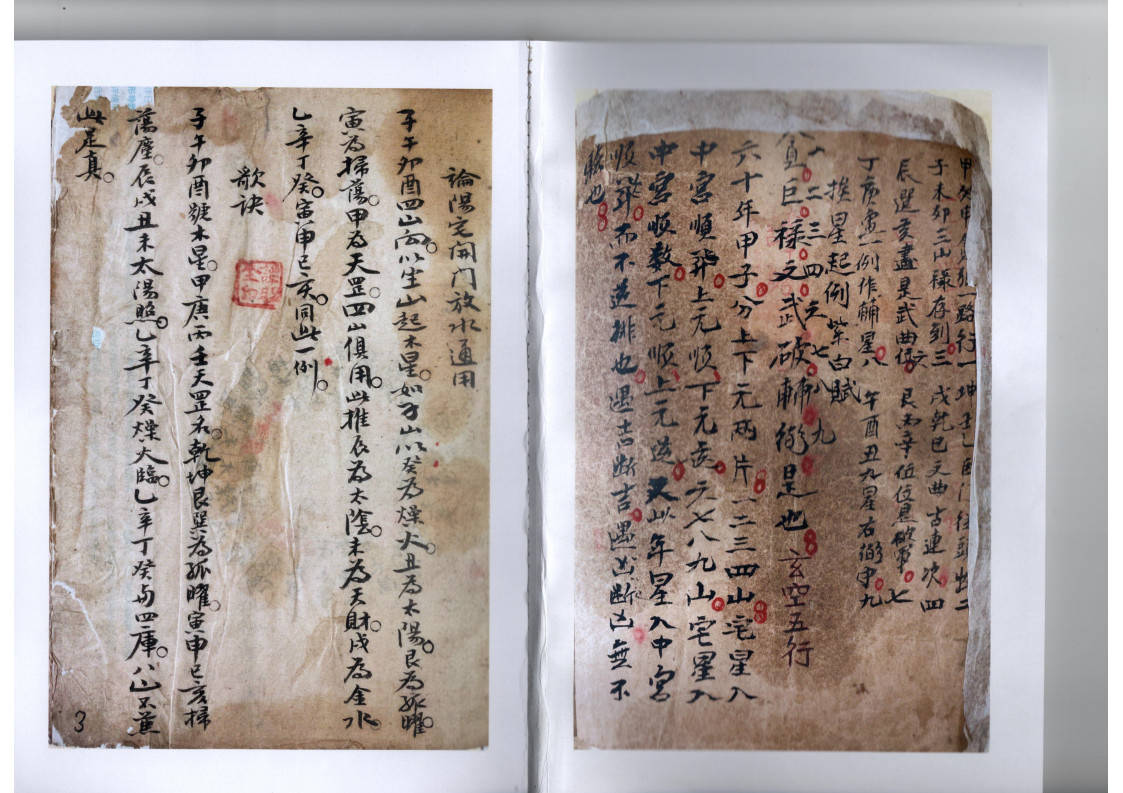 甲癸申貪狼一路行 一 坤壬乙巨門從頭出 二
子未卯三山祿存到 三 戌乾巳文曲古連次 四
辰巽亥盡是武曲位 六 艮丙辛位位是破軍 七
丁庚寅一例作輔星 八 午酉丑九星右弼中 九
挨星起例紫白賦
一 二 三 四 六 七 八 九
貪巨祿文武破輔弼是也 玄空五行
六十年甲子分上下元兩片一二三四山宅星入
中宮順飛上元順下元逆六七八九山宅星入
中宮順数下元順上元逆又此年星入中宮
順飛而不逆排也遇吉断吉遇凶断凶無不
驗也
論陽宅開门放水通用
子午卯酉四山向以坐山起木星如子山以癸為燥火丑為太陽艮為孤曜
寅為掃蕩甲為天罡四山俱用此推辰為太陰未為天財戌為金水
乙辛丁癸寅申巳亥同此一例
歌訣
子午卯酉號木星甲庚丙壬天罡名乾坤艮巽為孤曜寅申巳亥掃
蕩塵辰戌丑未太陽照乙辛丁癸燥火臨乙辛丁癸与四庫八山不
此足真
3